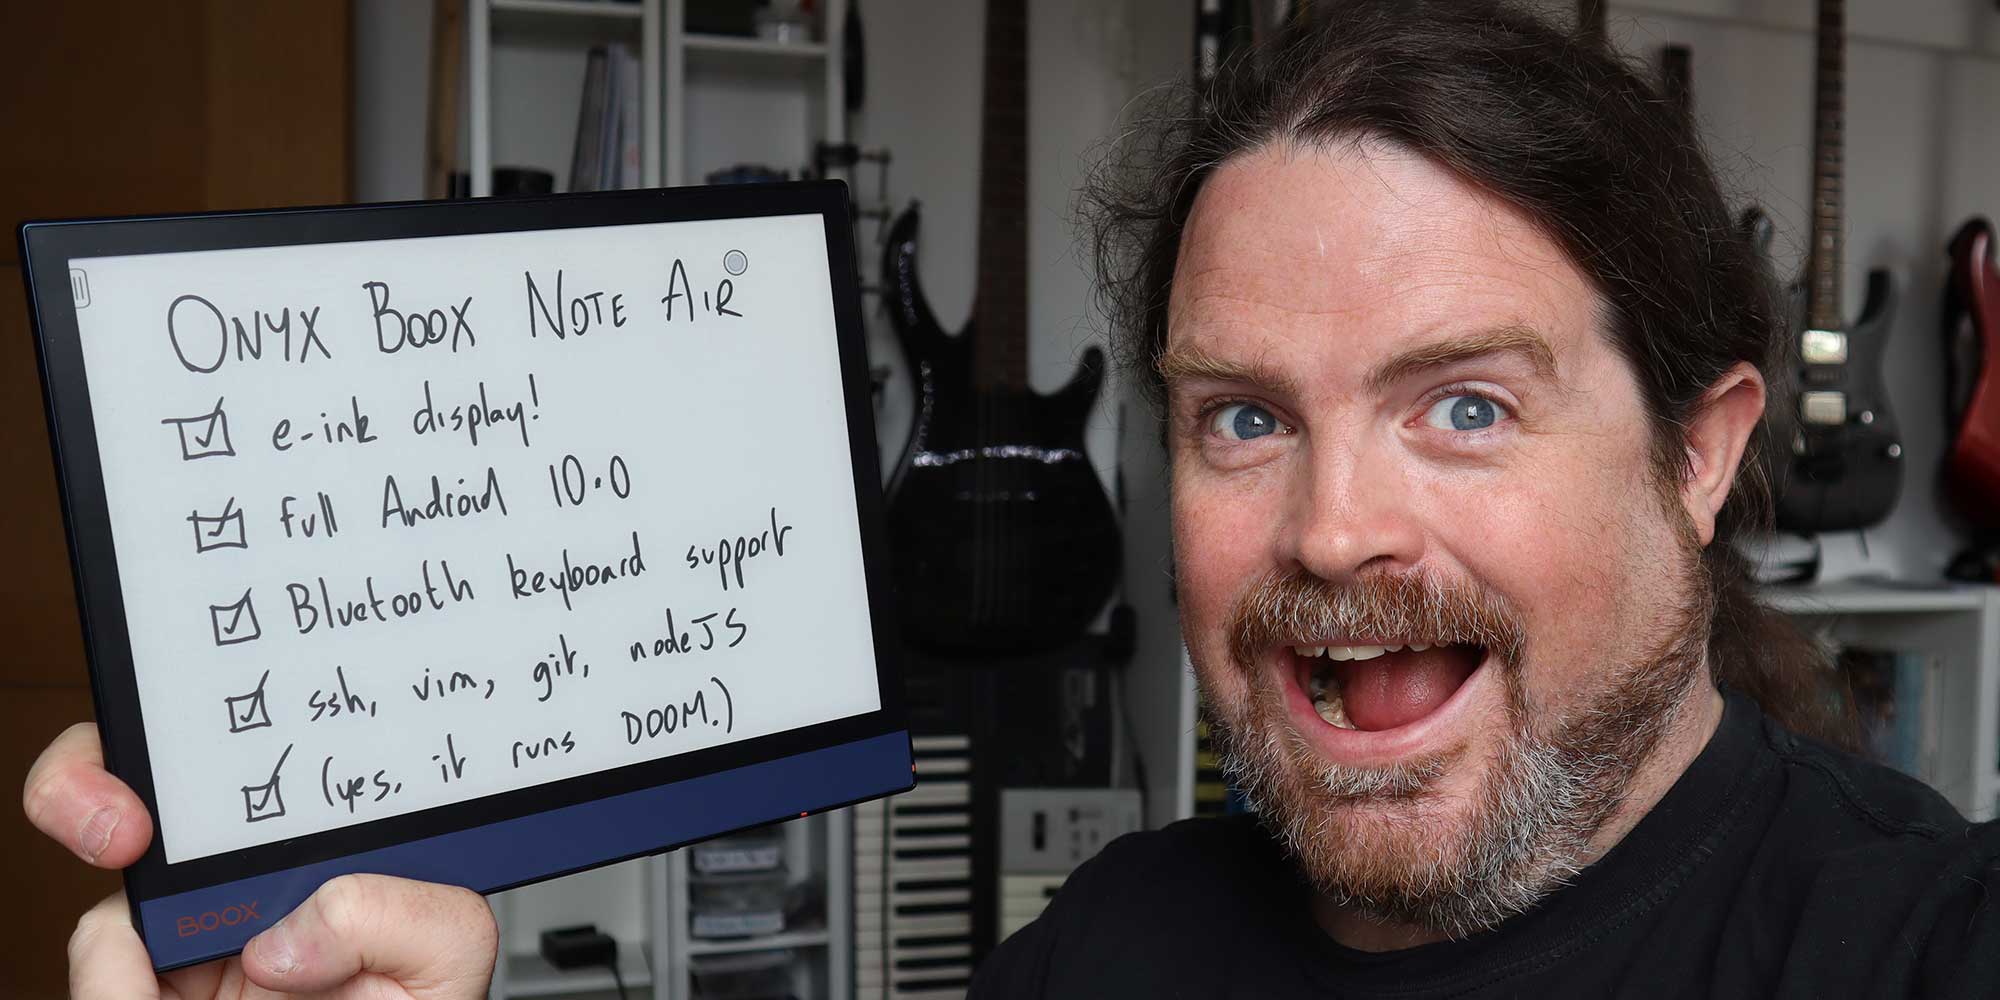 ONYX BOOX NOTE AIR
e-ink display!
full Android 10.0
Bluetooth keyboard support
ssh, vim, git, nodeJS
(yes, it runs DOOM.)
BOOX